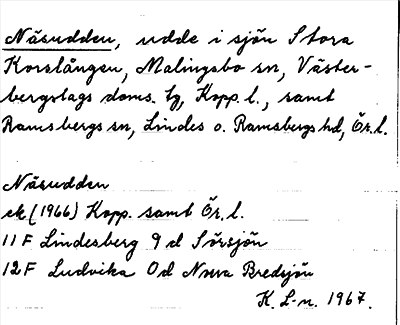 Näsudden, udde i sjön Stora
Korslången, Malingsbo sn, Väster-
bergslags doms. tg, Kopp. l., samt
Ramsbergs sn, Lindes o. Ramsbergs hd, Ör. l.
Näsudden
ek (1966) Kopp. samt Ör. l.
11 F Lindesberg 9 d Sörsjön
12 F Ludvika 0 d Norra Bredsjön
K. L-n. 1967.